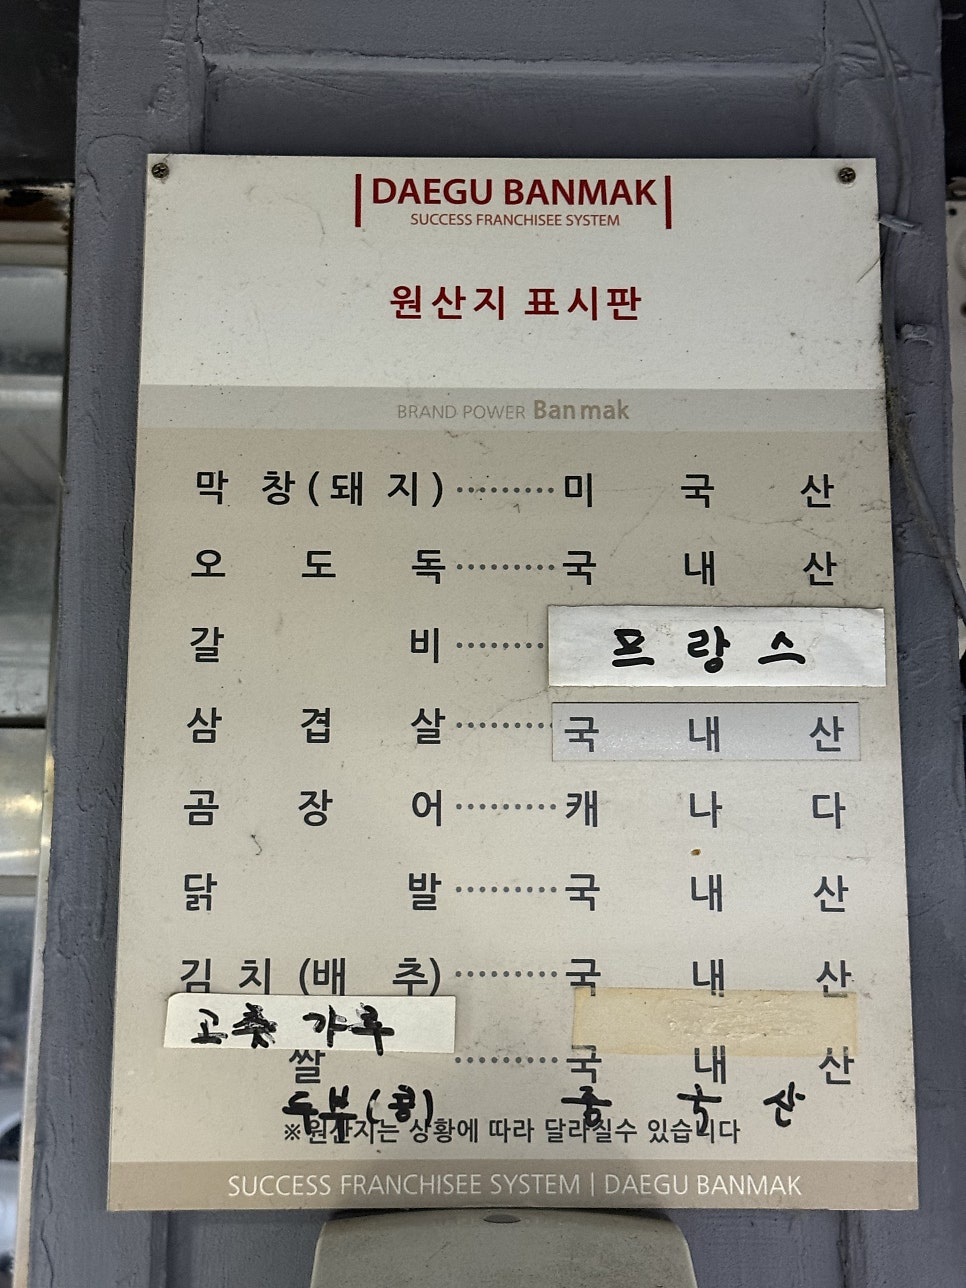 DAEGU BANMAK
SUCCESS FRANCHISEE SYSTEM
원산지 표시판
BRAND POWER Banmak
막창(돼지)·········미국산
오도독·········국내산
갈비········프랑스
삼겹살·········국내산
곰장어·········캐나다
닭발·········국내산
김치(배추)·········국내산
고춧가루
쌀·········국내산
두부(콩) 중국산
※원산지는 상황에 따라 달라질수 있습니다
SUCCESS FRANCHISEE SYSTEM | DAEGU BANMAK